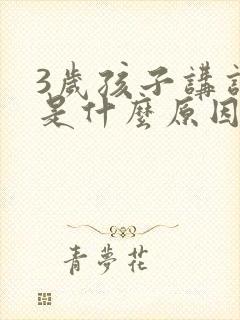 3歲孩子講
是什麼原因
青夢花